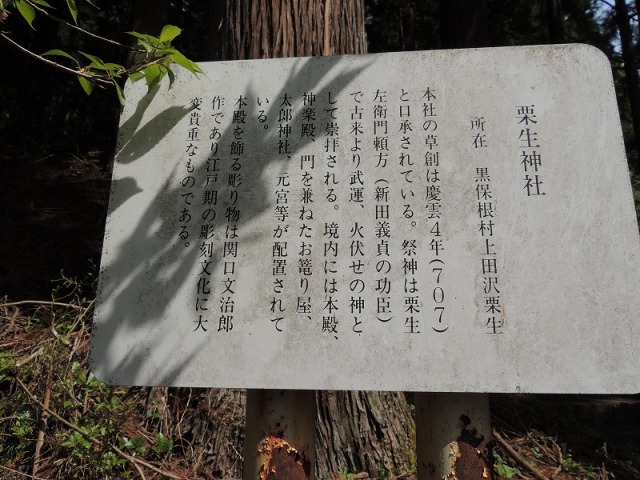 栗生神社
所在　黒保根村上田沢栗生
本社の草創は慶雲４年(７０７)
と口承されている。祭神は栗生
左衛門頼方(新田義貞の功臣)
で古来より武運、火伏せの神と
して崇拝される。境内には本殿、
神楽殿、門を兼ねたお篭り屋、
太郎神社、元宮等が配置されて
いる。
本殿を飾る彫り物は関口文治郎
作であり江戸期の彫刻文化に大
変貴重なものである。